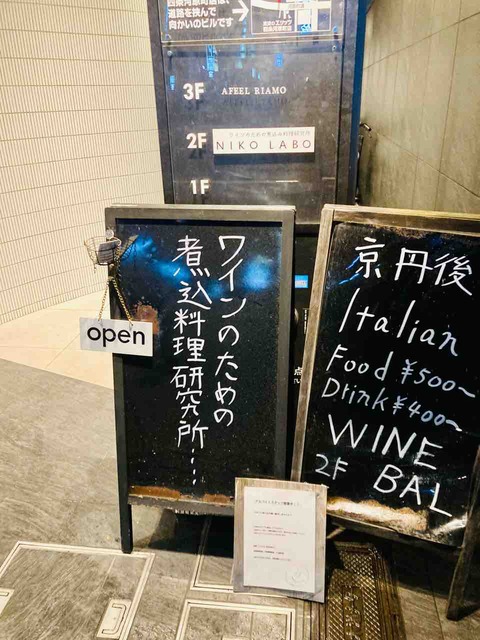 四条河原町店は、
道路を挟んで
向かいのビルです
3F AFEEL RIAMO
2F ワインのための煮込み料理研究所
NIKO LABO
1F
open
ワインのための
煮込料理研究所…
京丹後
Italian
Food ¥500~
Drink ¥400~
WINE
2F BAL